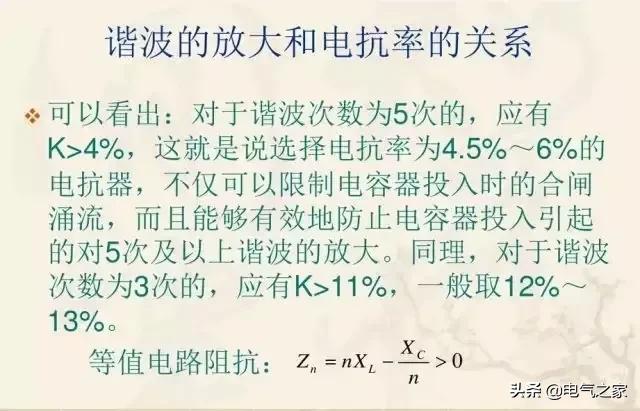 谐波的放大和电抗率的关系
可以看出：对于谐波次数为5次的，应有
K>4%，这就是说选择电抗率为4.5%～6%的
电抗器，不仅可以限制电容器投入时的合闸
涌流，而且能够有效地防止电容器投入引起
的对5次及以上谐波的放大。同理，对于谐波
次数为3次的，应有K>11%，一般取12%～
13%。
等值电路阻抗： Zₙ = nX_L − X_C/n > 0
头条 @电气之家